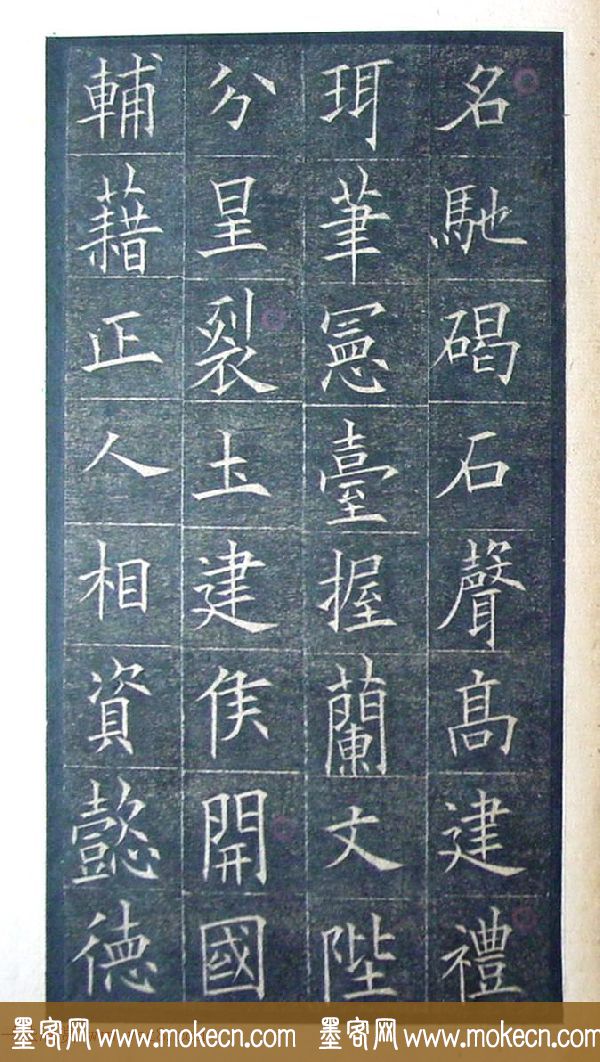 名馳碣石聲髙建禮
珥筆憲臺握蘭文陛
分星裂土建侯開國
輔藉正人相資懿德
墨客网 www.mokecn.com 墨客网 www.mokecn.com